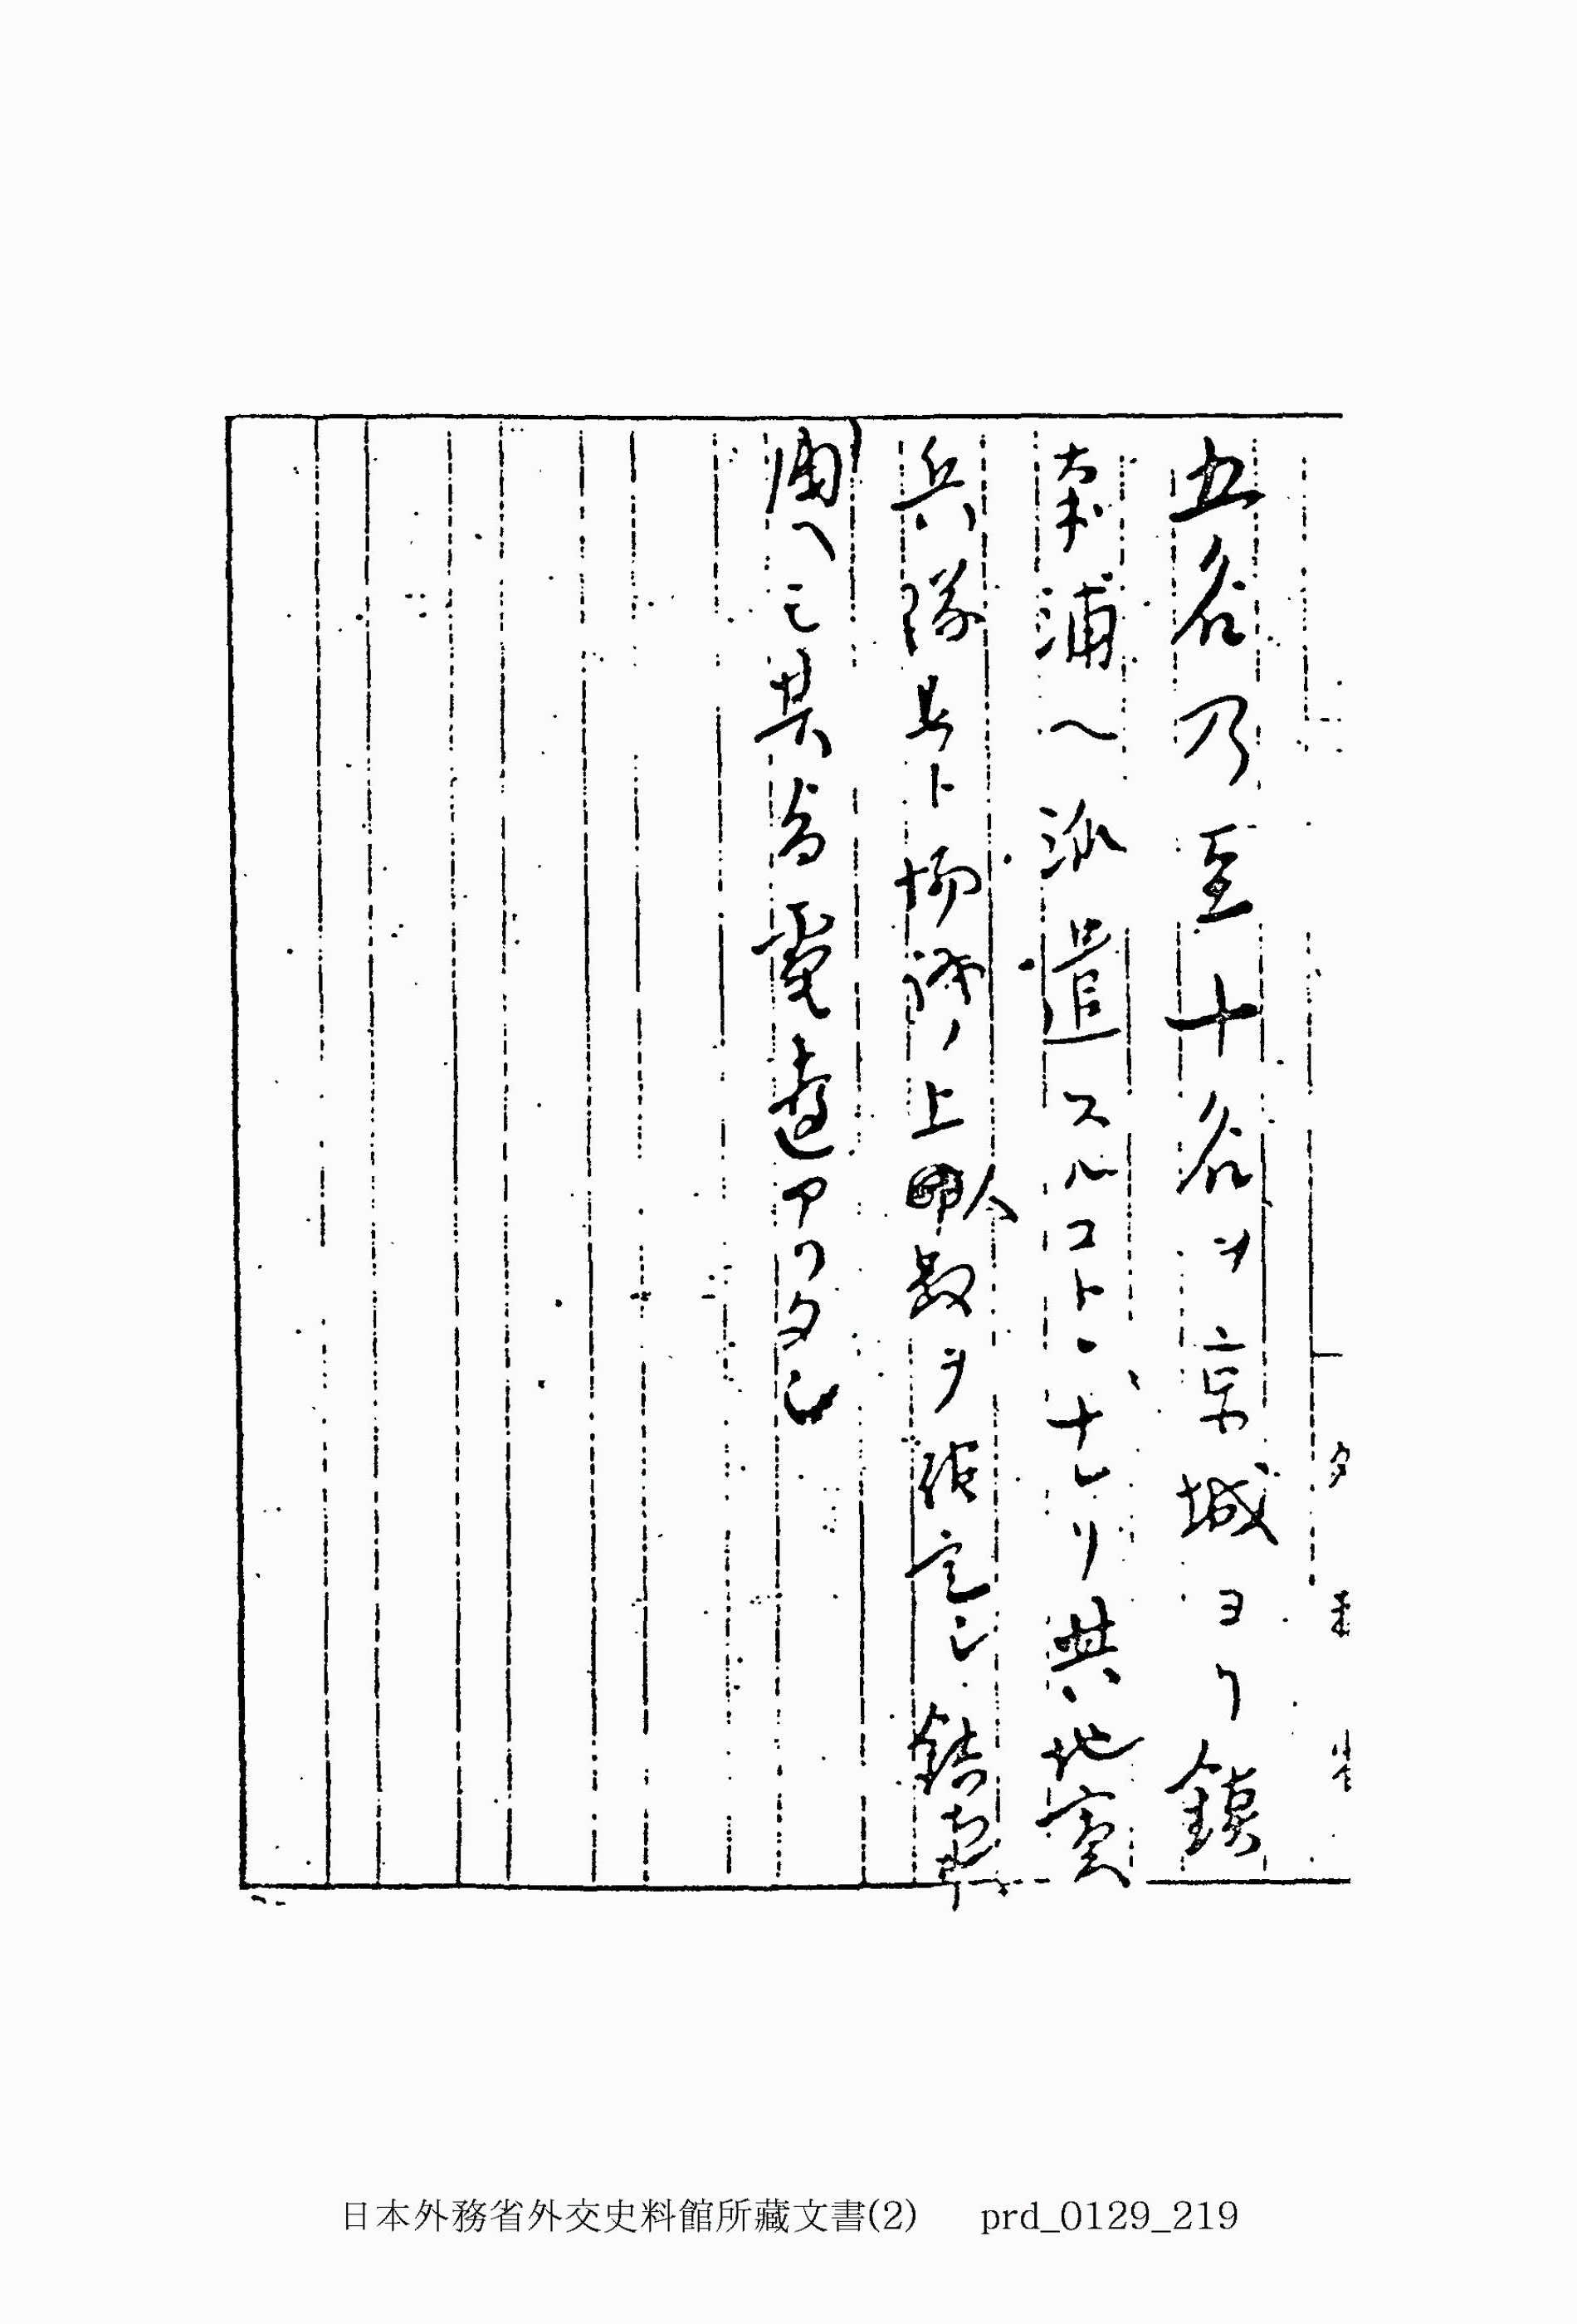 五名乃至十名ヲ京城ヨリ鎮
南浦ヘ派遣スルコトヽナレリ其地憲
兵隊長ト協議ノ上人数ヲ定シ鎮南
浦ヘモ其旨電達アリタシ
日本外務省外交史料館所藏文書(2) prd_0129_219